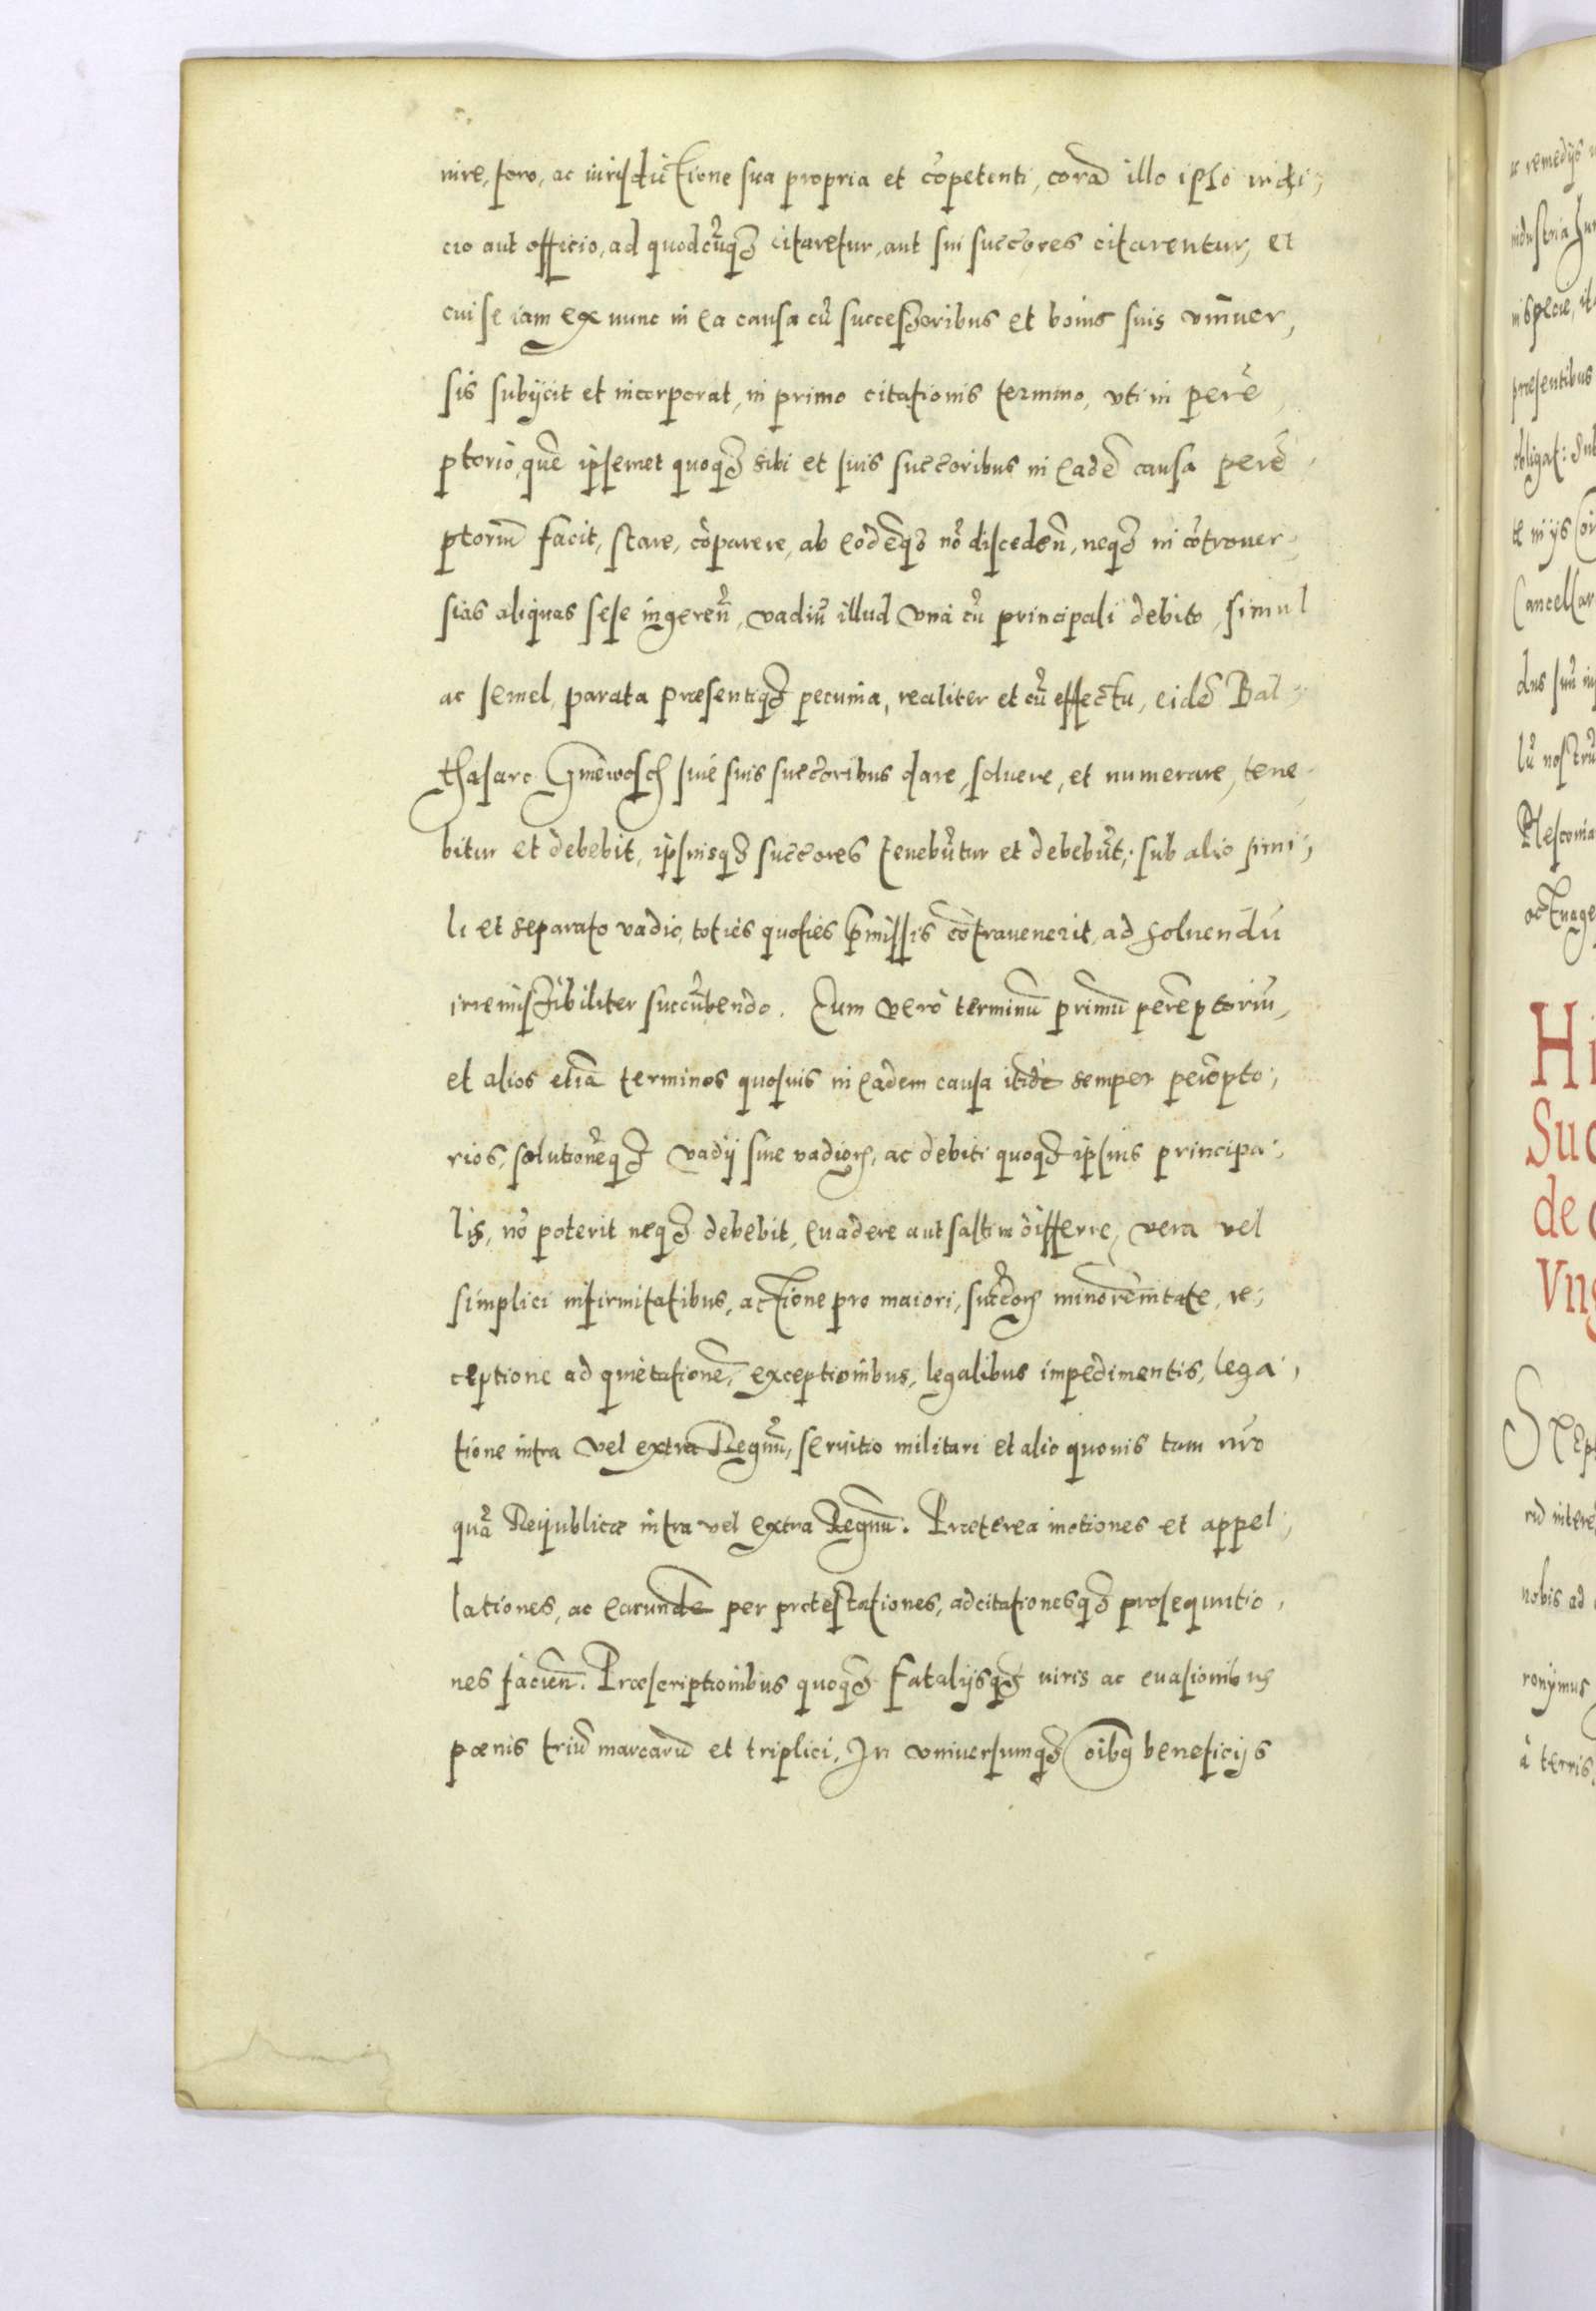 iure, foro, ac iurisdictione sua propria et cõpetenti, corã illo ipso iudi,
cio aut officio, ad quodcũqȝ citaretur, aut sui succẽores citarentur, et
cui se iam ex nunc in ea causa cũ successoribus et bonis suis vniuer,
sis subijcit et incorporat, in primo citationis termino, vti in perẽ
ptorio, quẽ ipsemet quoqȝ sibi et suis succẽoribus in eadẽ causa perẽ
ptoriũ facit, stare, cõparere, ab eodẽqȝ nõ disceden̄, neqȝ in cõtrouer,
sias aliquas sese ingeren̄, vadiũ illud vnà cũ principali debito, simul
ac semel, parata præsentiqȝ pecunia, realiter et cũ effectu, eidẽ Bal,
thasaro Gniewosch siue suis succẽoribus dare, soluere, et numerare, tene,
bitur et debebit, ipsiusqȝ succẽores tenebũtur et debebũt, sub alio simi,
li et separato vadio, toties quoties p̃missis cõtrauenerit, ad soluendũ
irremissibiliter succũbendo. Cum verò terminũ primũ perẽptoriũ,
et alios etiã terminos quosuis in eadem causa itidẽ semper perẽpto,
rios, solutionẽqȝ vadij siue vadiorꝫ, ac debiti quoqȝ ipsius principa,
lis, nõ poterit neqȝ debebit, euadere aut saltim differre, vera vel
simplici infirmitatibus, actione pro maiori, succẽorꝫ minorẽnitate, re,
ceptione ad quietationẽ, exceptionibus, legalibus impedimentis, lega,
tione intra vel extra Regnũ, seruitio militari et alio quouis tam nr̃o
quã Reipublicæ intra vel extra Regnũ. Præterea motiones et appel,
lationes, ac earundẽ per protestationes, adcitationesqȝ prosequutio,
nes facien̄. Præscriptionibus quoqȝ fatalijsqȝ iuris ac euasionibus
pœnis triũ marcarũ et triplici. In vniuersumqȝ oĩbꝫ beneficijs